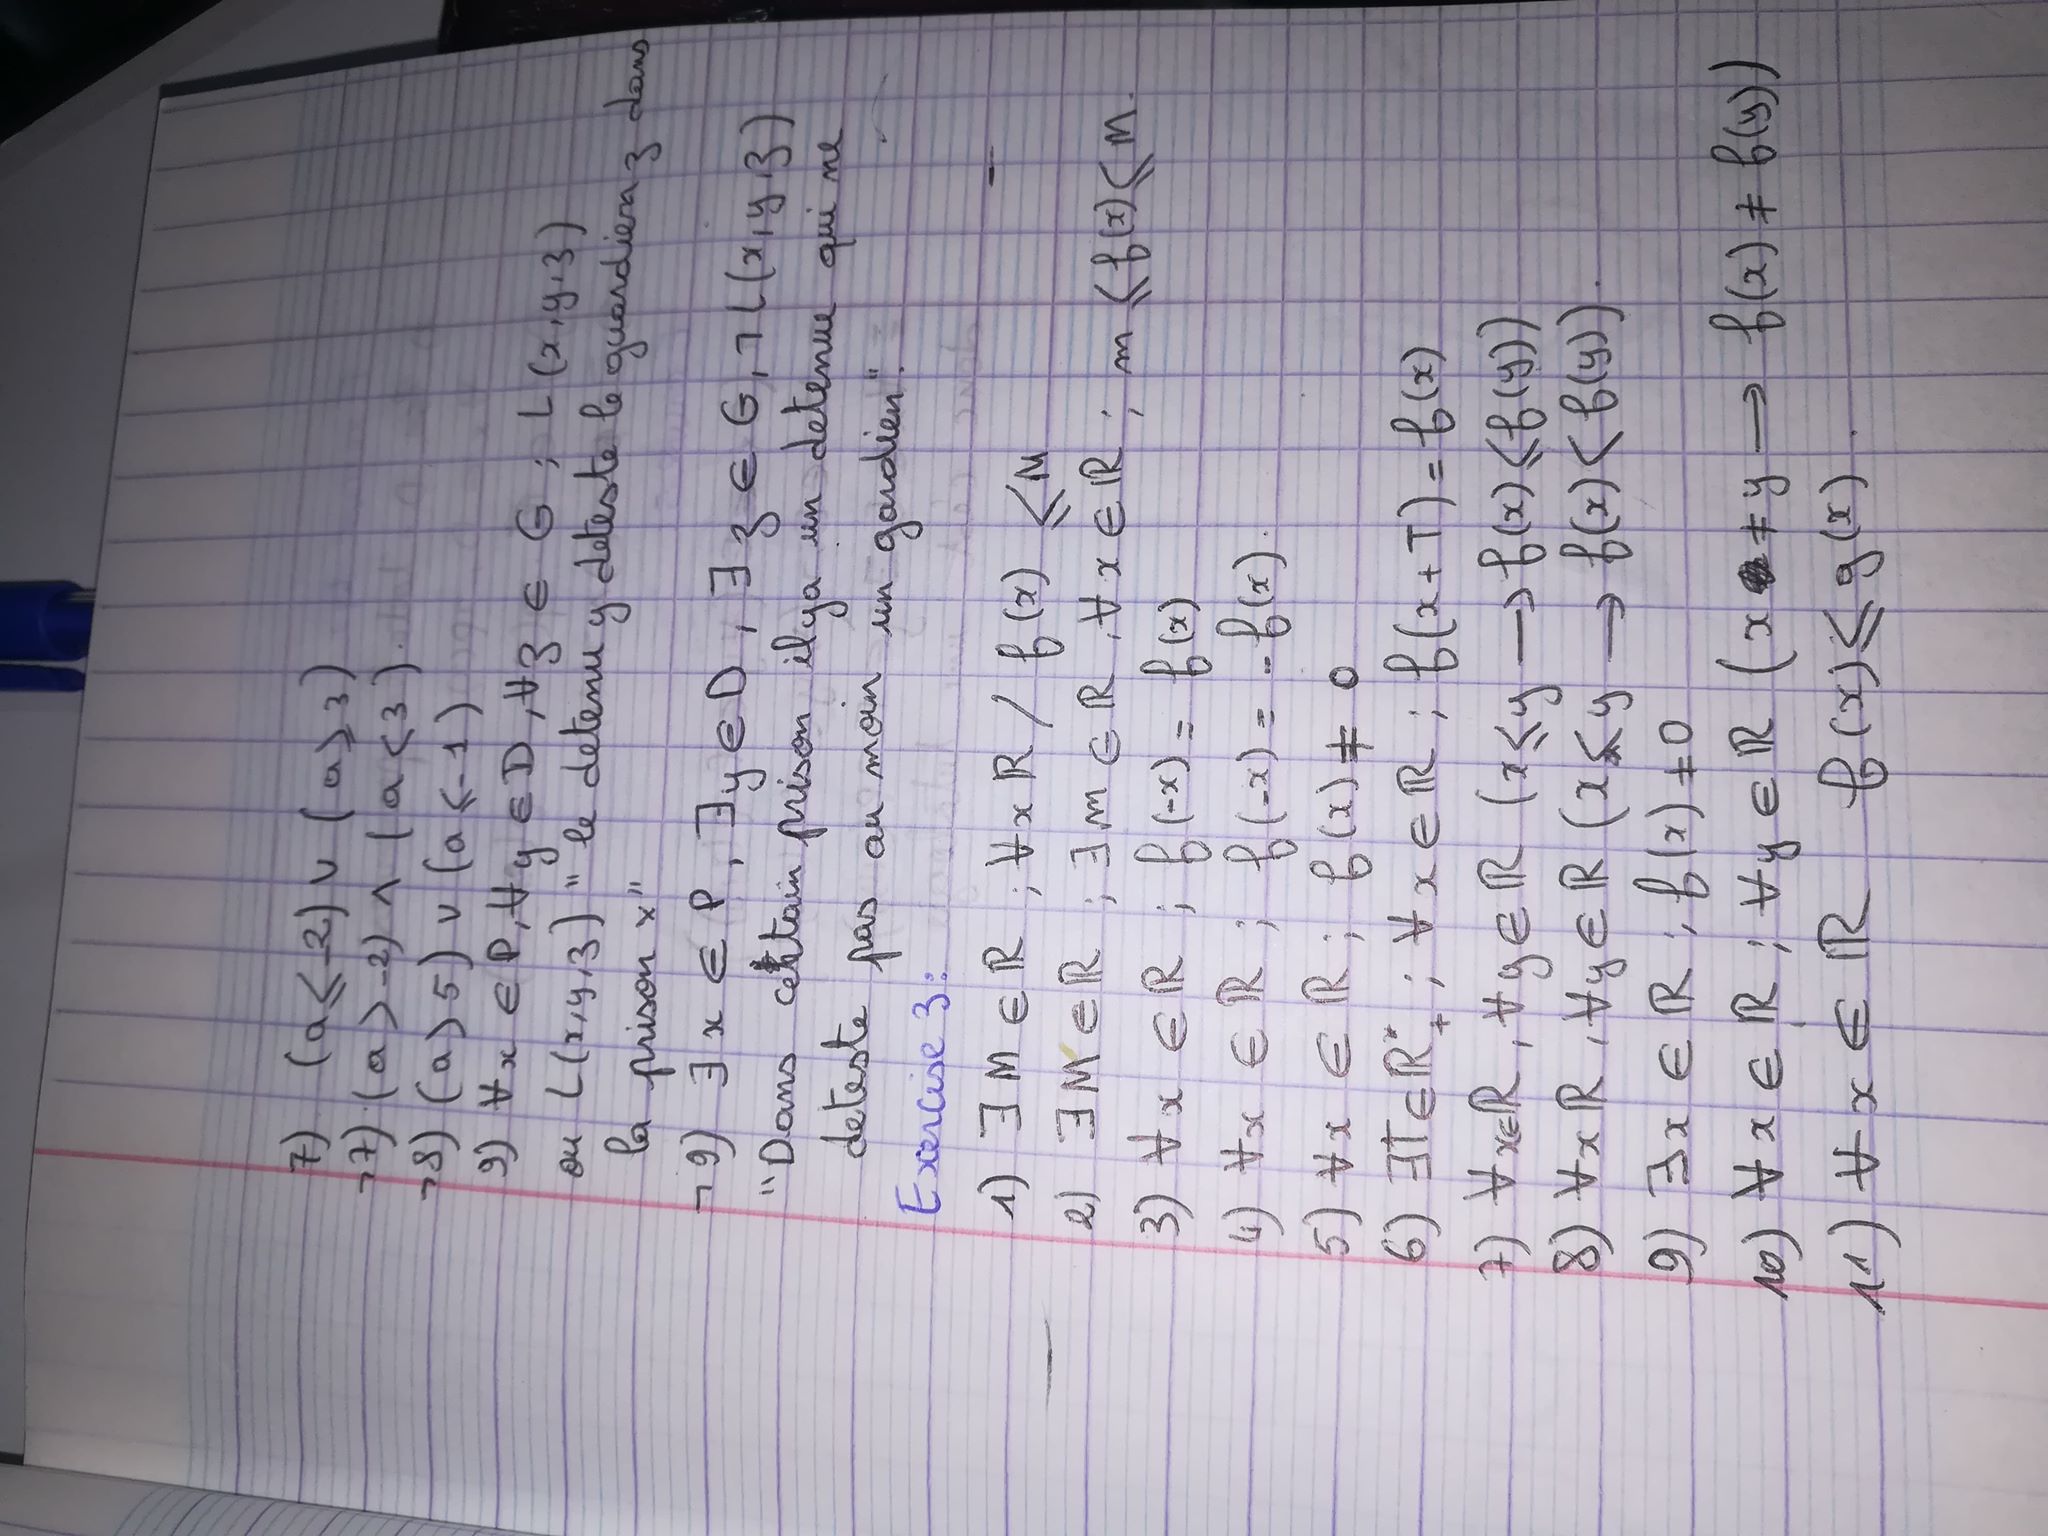 7) (a ⩽ -2) ∨ (a ⩾ 3)
¬7) (a > -2) ∧ (a < 3).
¬8) (a > 5) ∨ (a ⩽ -1)
9) ∀x ∈ P, ∀y ∈ D, ∀z ∈ G ; L(x,y,z)
ou L(x,y,z) " le detenu y deteste le guardien z dans
la prison x"
¬9) ∃x ∈ P, ∃y ∈ D, ∃z ∈ G, ¬L(x,y,z)
"Dans certain prison il ya un detenue qui ne
deteste pas au moin un gardien".
Exercise 3:
1) ∃M ∈ ℝ ; ∀x ℝ / f(x) ⩽ M
2) ∃M ∈ ℝ ; ∃m ∈ ℝ, ∀x ∈ ℝ ; m ⩽ f(x) ⩽ M.
3) ∀x ∈ ℝ ; f(-x) = f(x)
4) ∀x ∈ ℝ ; f(-x) = -f(x).
5) ∀x ∈ ℝ ; f(x) ≠ 0
6) ∃T ∈ ℝ*₊ ; ∀x ∈ ℝ ; f(x+T) = f(x)
7) ∀x∈ℝ, ∀y ∈ ℝ (x ⩽ y → f(x) ⩽ f(y))
8) ∀x ℝ, ∀y ∈ ℝ (x ⩽ y → f(x) < f(y)).
9) ∃x ∈ ℝ ; f(x) ≠ 0
10) ∀x ∈ ℝ ; ∀y ∈ ℝ (x ≠ y → f(x) ≠ f(y))
11) ∀x ∈ ℝ f(x) ⩽ g(x).